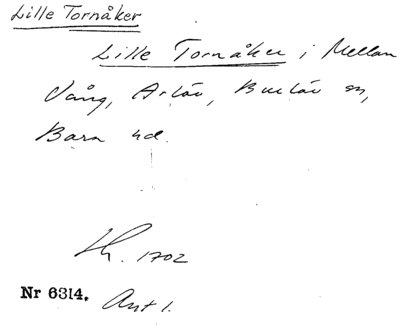 Lille Tornåker
Lille Tornåker i Mellan
Vång, Arlöv, Burlöv sn,
Bara hd.
Lh. 1702
Nr 6314. Ant 1.